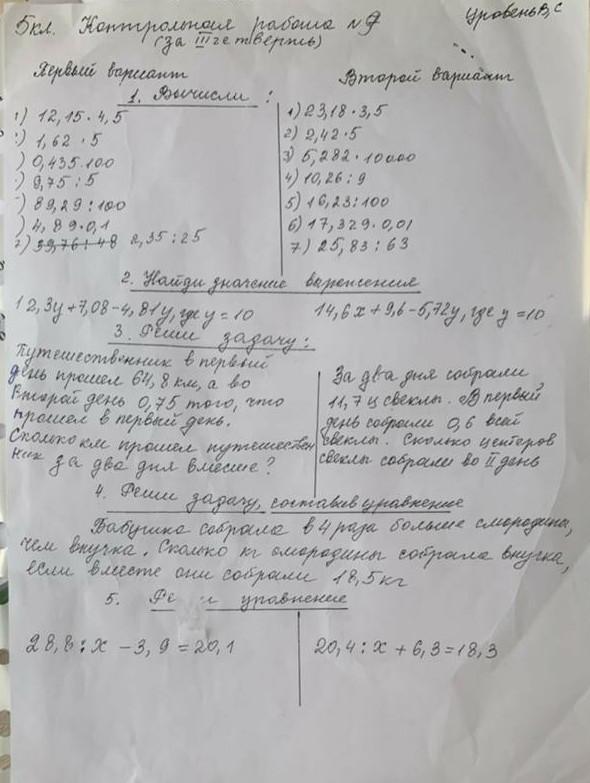 5кл. Контрольная работа № 7
уровень В, С
(за III четверть)
Первый вариант
Второй вариант
1. Вычисли:
1) 12,15·4,5
) 1,62·5
) 0,435·100
) 9,75:5
) 89,29:100
) 4,89·0,1
7) 39,76:48 2,35:25
1) 23,18·3,5
2) 2,42·5
3) 5,282·10000
4) 10,26:9
5) 16,23:100
6) 17,329·0,01
7) 25,83:63
2. Найди значение выражения
12,3y+7,08-4,81y, где y=10
14,6x+9,6-5,72y, где y=10
3. Реши задачу:
Путешественник в первый
день прошел 64,8 км, а во
второй день 0,75 того, что
прошел в первый день.
Сколько км прошел путешествен
ник за два дня вместе?
За два дня собрали
11,7 ц свеклы. В первый
день собрали 0,6 всей
свеклы. Сколько центеров
свеклы собрали во II день
4. Реши задачу, составив уравнение
Бабушка собрала в 4 раза больше смородины,
чем внучка. Сколько кг смородины собрала внучка,
если вместе они собрали 18,5кг
5. Ре и уравнение
28,8:x-3,9=20,1
20,4:x+6,3=18,3